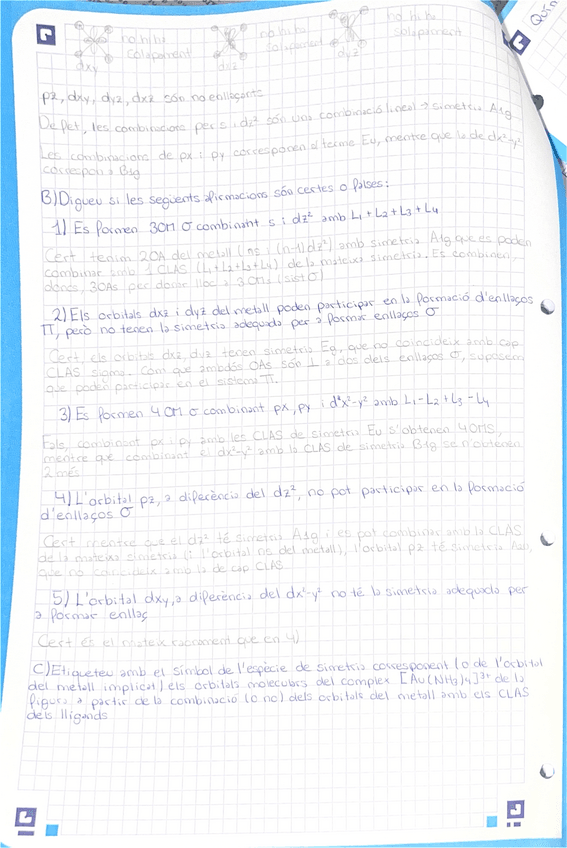 no hi ha
solapament
no hi ha
solapament
no hi ha
solapament
dxy
dxz
dyz
Quím
pz, dxy, dyz, dxz són no enllaçants
De fet, les combinacions per s i dz² són una combinació lineal → simetria A1g
Les combinacions de px i py corresponen al terme Eu, mentre que la de dx²-y²
correspon a B1g
B) Digueu si les següents afirmacions són certes o falses:
1) Es formen 3OM σ combinant s i dz² amb L1 + L2 + L3 + L4
Cert tenim 2OA del metall (ns i (n-1)dz²) amb simetria A1g que es poden
combinar amb 1 CLAS (L1+L2+L3+L4) de la mateixa simetria. Es combinen,
doncs, 3OAs per donar lloc a 3OMs (set σ)
2) Els orbitals dxz i dyz del metall poden participar en la formació d'enllaços
π, però no tenen la simetria adequada per a formar enllaços σ
Cert, els orbitals dxz, dyz tenen simetria Eg, que no coincideix amb cap
CLAS sigma. Com que ambdós OAs són ⊥ a dos dels enllaços σ, suposem
que poden participar en el sistema π.
3) Es formen 4 OM σ combinant px, py i dx²-y² amb L1 - L2 + L3 - L4
Fals, combinant px i py amb les CLAS de simetria Eu s'obtenen 4OMS,
mentre que combinant el dx²-y² amb la CLAS de simetria B1g se n'obtenen
2 més
4) L'orbital pz, a diferència del dz², no pot participar en la formació
d'enllaços σ
Cert mentre que el dz² té simetria A1g i es pot combinar amb la CLAS
de la mateixa simetria (i l'orbital ns del metall), l'orbital pz té simetria A2u,
que no coincideix amb la de cap CLAS
5) L'orbital dxy, a diferència del dx²-y² no té la simetria adequada per
a formar enllaç
Cert és el mateix raonament que en 4)
C) Etiqueteu amb el símbol de l'espècie de simetria corresponent (o de l'orbital
del metall implicat) els orbitals moleculars del complex [Au(NH3)4]³⁺ de la
figura a partir de la combinació (o no) dels orbitals del metall amb els CLAS
dels lligands